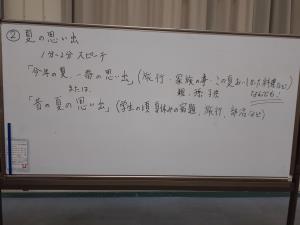 ② 夏の思い出
1分~2分 スピーチ
「今年の夏、一番の思い出」(旅行・家族の事・この夏おいしかった料理など)
または 親、孫、子供 なんでも!
「昔の夏の思い出」(学生の頃 夏休みの宿題、旅行、部活など)